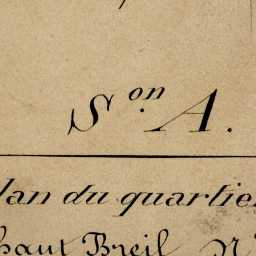 Son A.
lan du quartie
haut Breil N